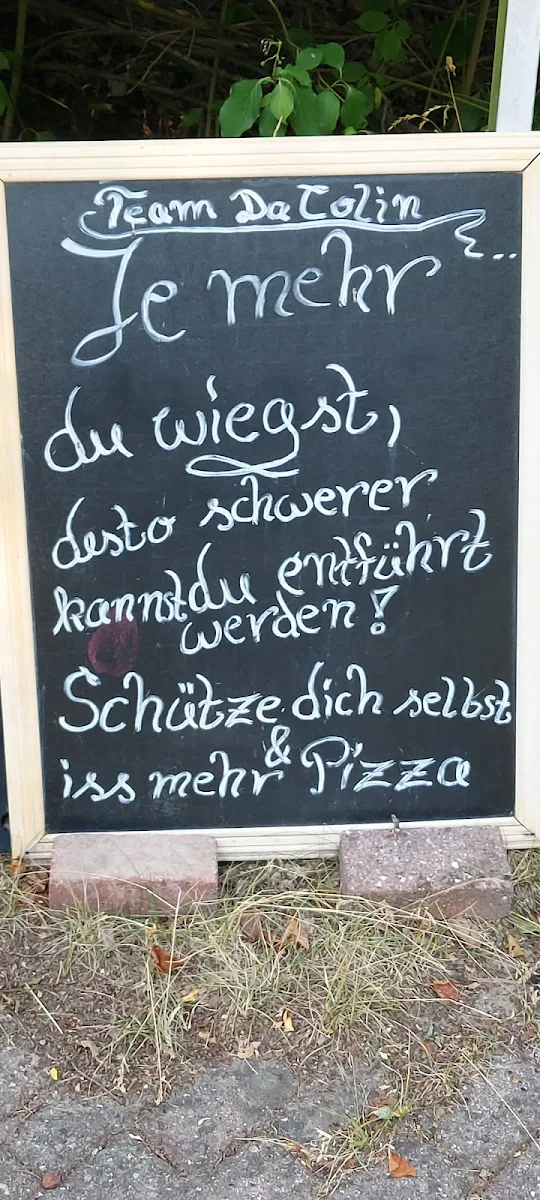 Team Da Colin
Je mehr
du wiegst,
desto schwerer
kannst du entführt
werden!
Schütze dich selbst
& 
iss mehr Pizza